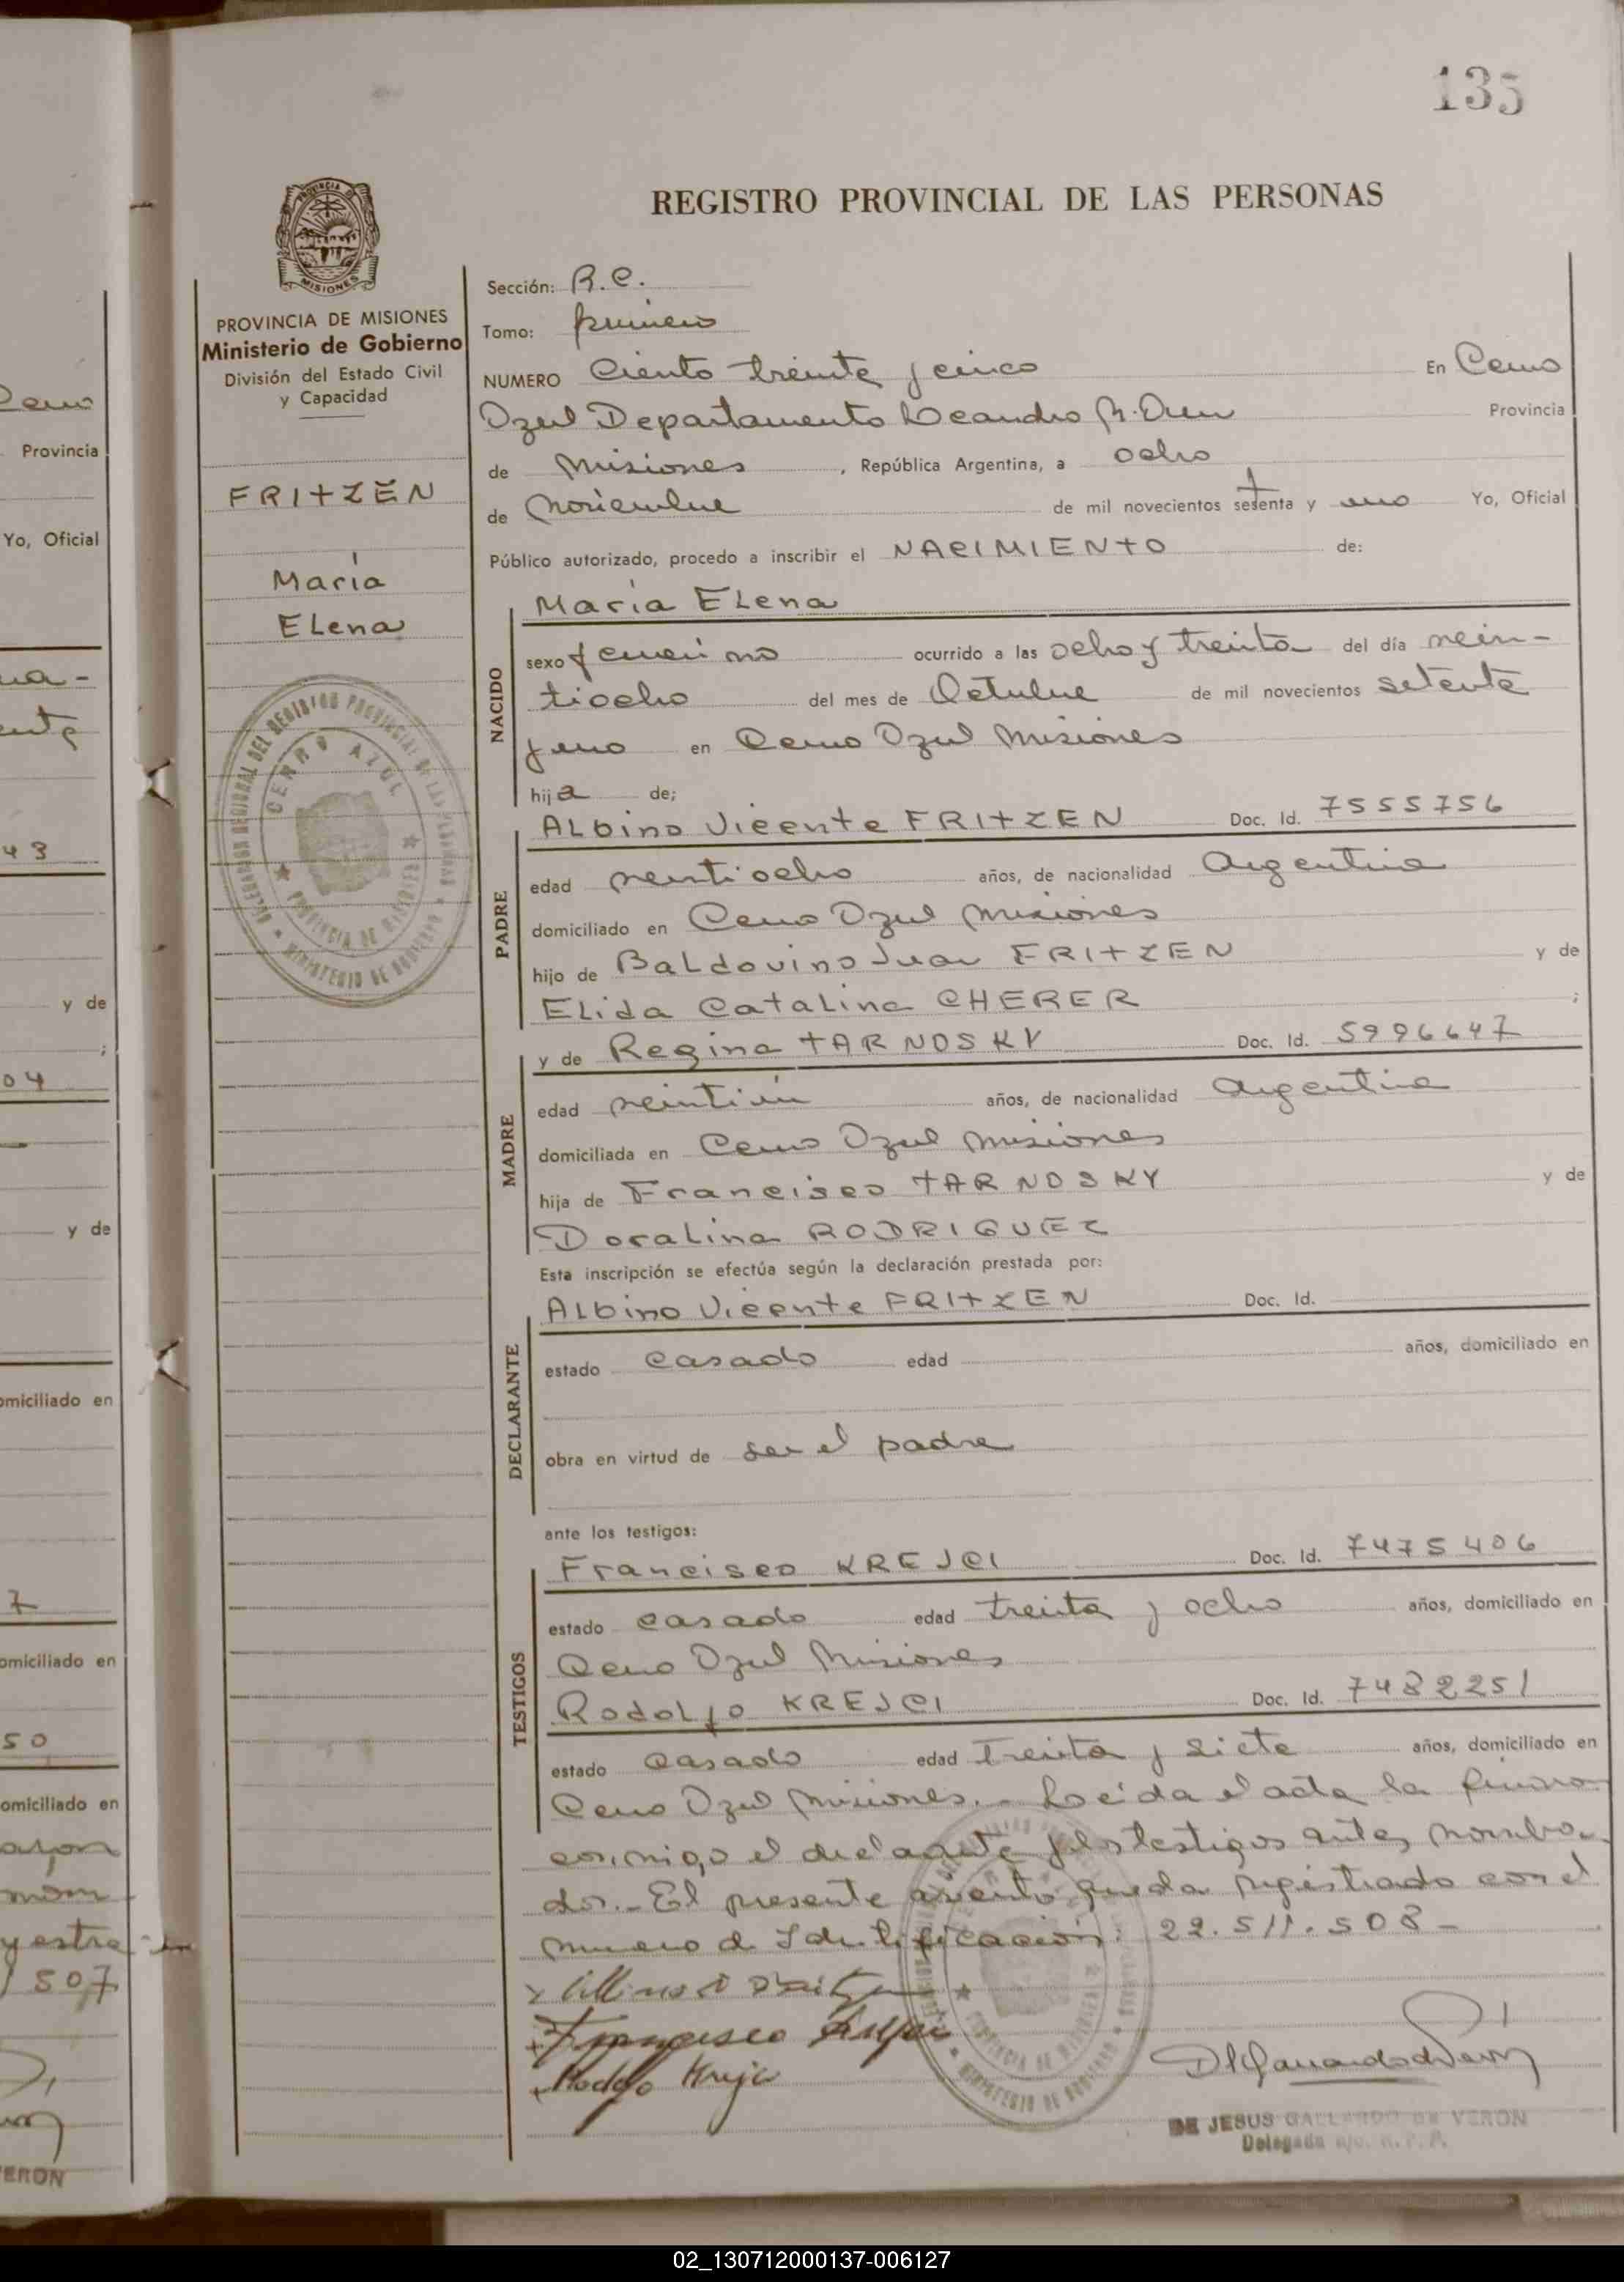 135
REGISTRO PROVINCIAL DE LAS PERSONAS
PROVINCIA DE MISIONES
Ministerio de Gobierno
División del Estado Civil
y Capacidad
FRITZEN
María
ELena
Sección: R.C.
Tomo: primero
NUMERO Ciento treinta y cinco En Cerro
Azul Departamento Leandro N. Alem Provincia
de Misiones, República Argentina, a ocho
de Noviembre de mil novecientos setenta y uno Yo, Oficial
Público autorizado, procedo a inscribir el NACIMIENTO de:
María ELena
NACIDO
sexo femenino ocurrido a las ocho y treinta del día vein-
tiocho del mes de Octubre de mil novecientos setenta
y uno en Cerro Azul Misiones
hija de;
PADRE
ALbino Vicente FRITZEN Doc. Id. 7555756
edad veintiocho años, de nacionalidad Argentina
domiciliado en Cerro Azul Misiones
hijo de BaLdovino Juan FRITZEN y de
ELida CataLina CHERER ;
MADRE
y de Regina TARNOSKY Doc. Id. 5996647
edad veintiún años, de nacionalidad Argentina
domiciliada en Cerro Azul Misiones
hija de Francisco TARNOSKY y de
DoraLina RODRIGUEZ
Esta inscripción se efectúa según la declaración prestada por:
DECLARANTE
ALbino Vicente FRITZEN Doc. Id.
estado casado edad años, domiciliado en
obra en virtud de ser el padre
ante los testigos:
TESTIGOS
Francisco KREJCI Doc. Id. 7475406
estado casado edad treinta y ocho años, domiciliado en
Cerro Azul Misiones
RodoLfo KREJCI Doc. Id. 7482251
estado casado edad treinta y siete años, domiciliado en
Cerro Azul Misiones.- Leída el acta la firman
conmigo el declarante y los testigos antes nombra-
dos.- El presente asiento queda registrado con el
numero de Identificación: 22.511.508-
Francisco
DE JESUS GALLARDO DE VERON
Delegada
CERRO AZUL
PROVINCIA DE MISIONES
MINISTERIO DE GOBIERNO
02_130712000137-006127